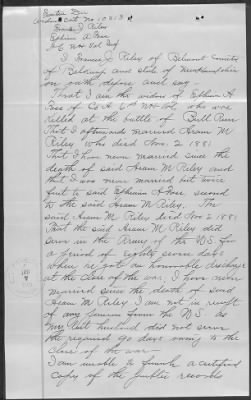 Pension Div
Widow Cert No. 10813
Frances J. Riley
Ephraim A. Poor
H. 6 N.H. Vol Inf
I Frances J. Riley of Belmont County
of Belknap and state of New Hampshire
on oath depose and say
That I am the widow of Ephraim A.
Poor of Co H. 6th N.H. Vols, who was
killed at the battle of Bull Run
That I afterwards married Hiram M.
Riley who died Nov. 2 1881
That I have never married since the
death of said Hiram M Riley and
that I was never married but twice
first to said Ephraim A Poor second
to the said Hiram M. Riley. The
said Hiram M Riley died Nov 2 1881
That the said Hiram M Riley did
serve in the Army of the U S for
a period of seven days
when he got an honorable discharge
at the close of the war. I have never
married since the death of said
Hiram M Riley I am not in receipt
of any pension from the U.S. as
my last husband did not serve
the required 90 days owing to the
close of the war
I am unable to furnish a certified
copy of the public records